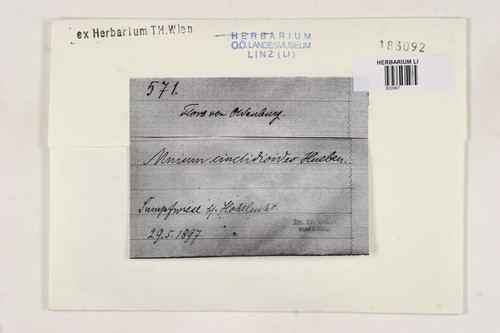 ex Herbarium TH.Wien
HERBARIUM
O.Ö. LANDESMUSEUM
LINZ (LI)
183092
HERBARIUM LI
571.
Flora von Oldenburg.
Mnium cinclidioides Hueben.
Sumpfwiese
29.5.1897.